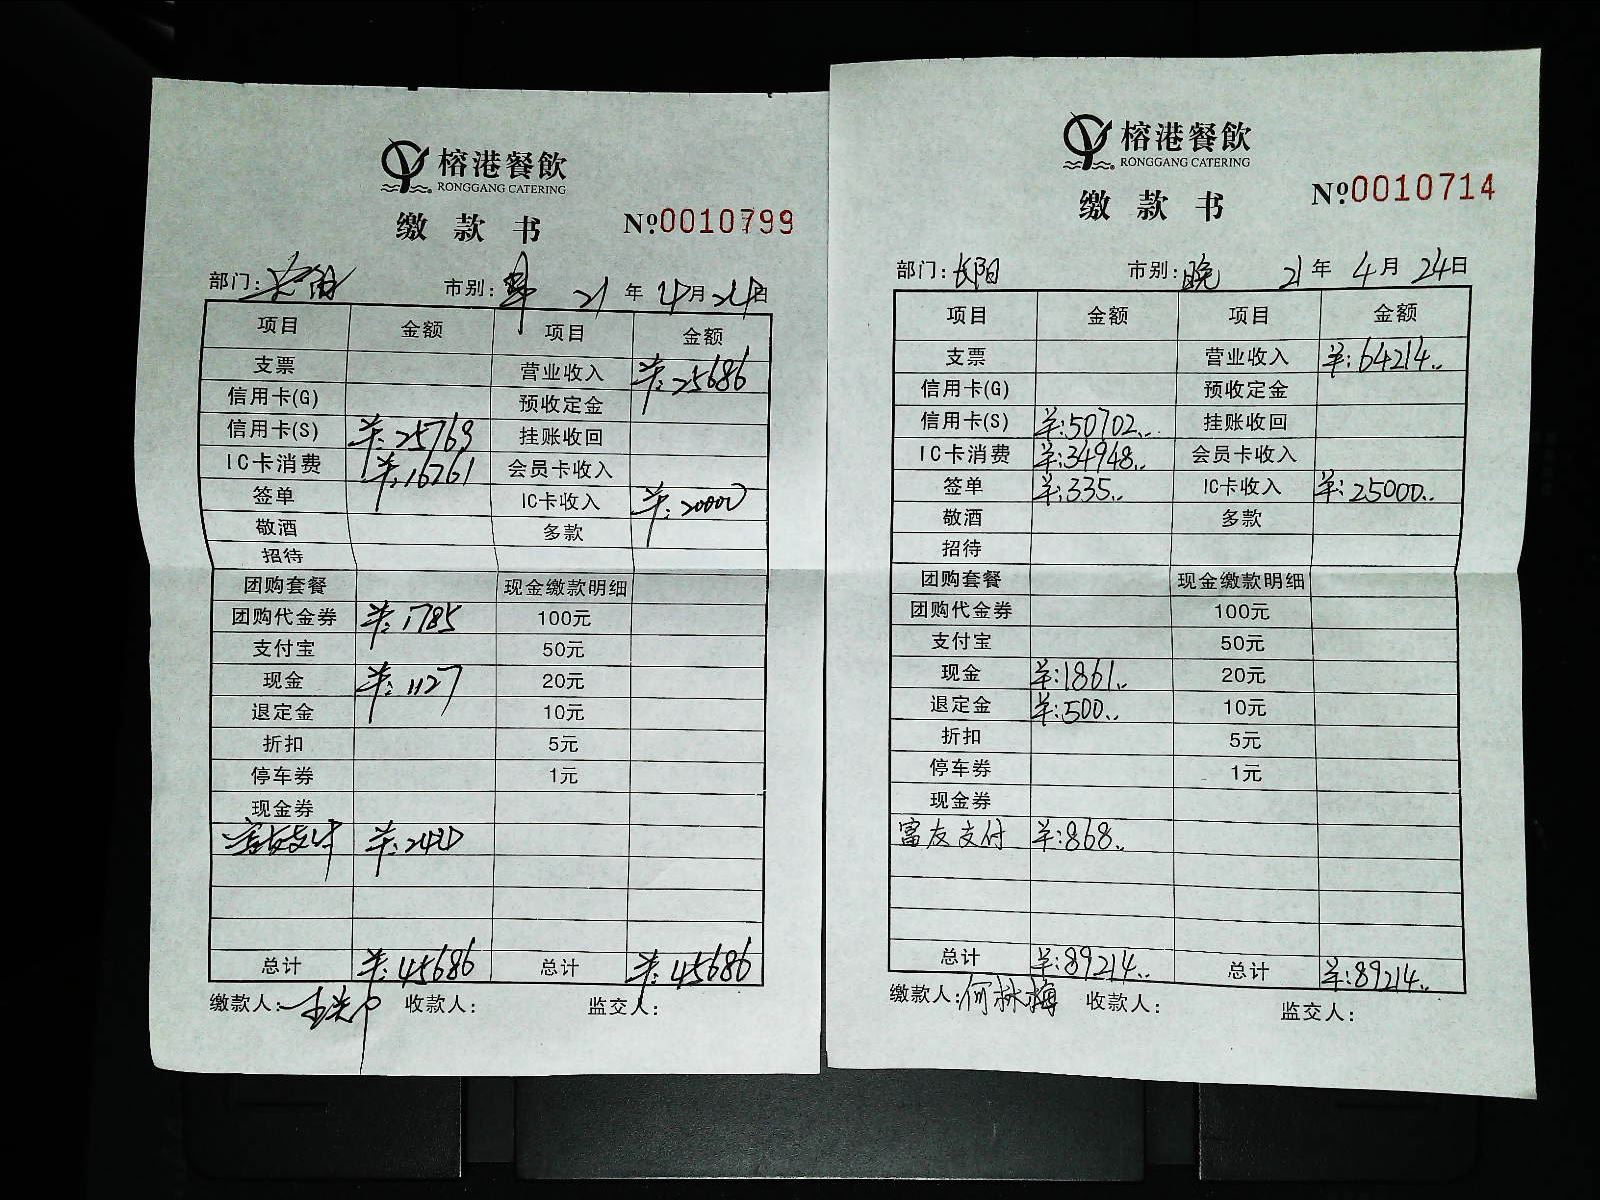 榕港餐飲
RONGGANG CATERING
缴款书 №0010799
部门: 长阳 市别: 早 21年4月24日
项目 金额 项目 金额
支票 营业收入 ¥:25686
信用卡(G) 预收定金
信用卡(S) ¥:25769 挂账收回
IC卡消费 ¥:16261 会员卡收入
签单 IC卡收入 ¥:20000
敬酒 多款
招待
团购套餐 现金缴款明细
团购代金券 ¥:1785 100元
支付宝 50元
现金 ¥:1127 20元
退定金 10元
折扣 5元
停车券 1元
现金券
富友支付
总计 ¥:45686 总计 ¥:45686
缴款人: 收款人: 监交人:
榕港餐飲
RONGGANG CATERING
缴款书 №0010714
部门: 长阳 市别: 晚 21年4月24日
项目 金额 项目 金额
支票 营业收入 ¥:64214..
信用卡(G) 预收定金
信用卡(S) ¥:50702.. 挂账收回
IC卡消费 ¥:34948.. 会员卡收入
签单 ¥:335.. IC卡收入 ¥:25000..
敬酒 多款
招待
团购套餐 现金缴款明细
团购代金券 100元
支付宝 50元
现金 ¥:1861.. 20元
退定金 ¥:500.. 10元
折扣 5元
停车券 1元
现金券
富友支付 ¥:868..
总计 ¥:89214.. 总计 ¥:89214..
缴款人: 何林梅 收款人: 监交人: